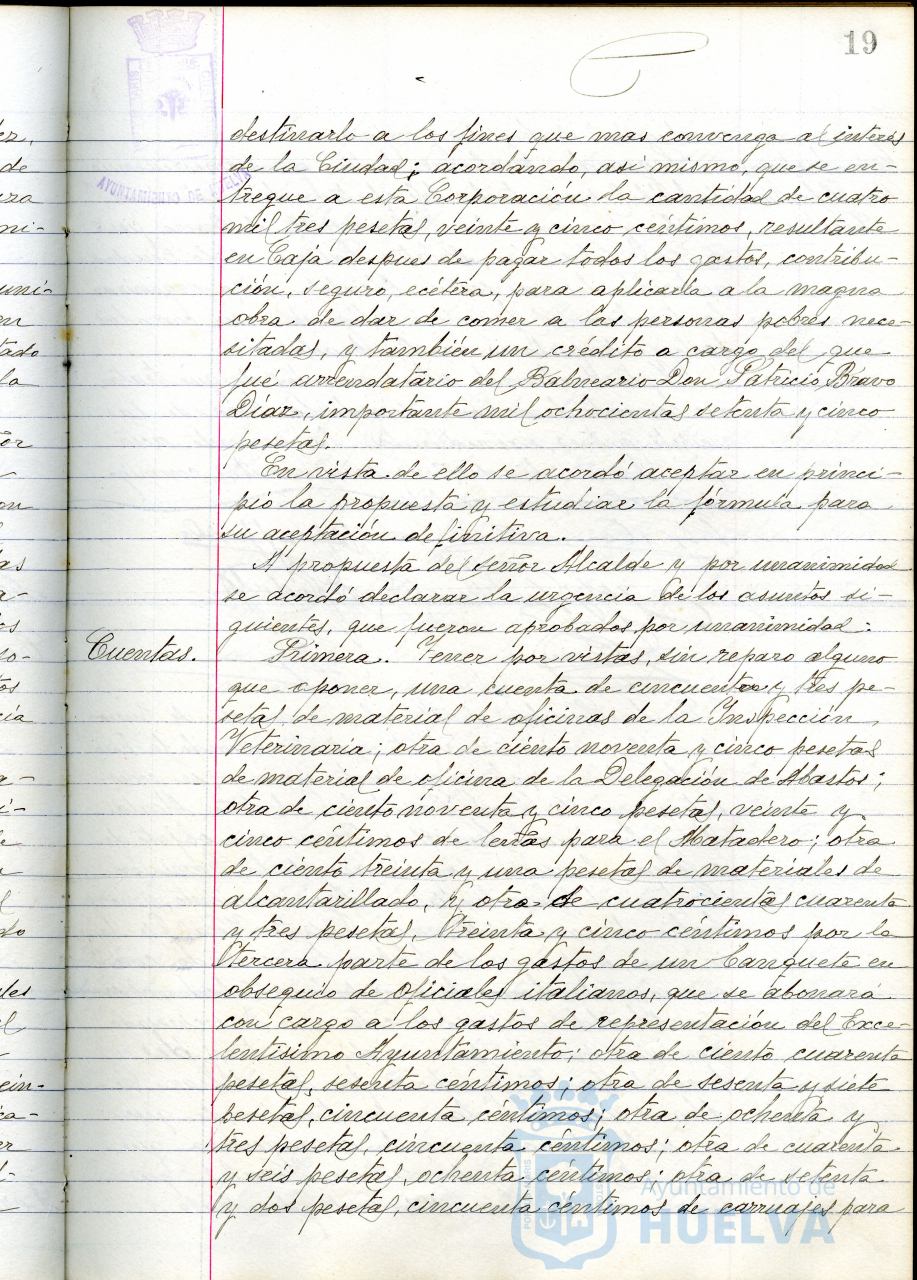 19
destinarlo a los fines que mas convenga al interés
de la Ciudad; acordando, asi mismo, que se en-
tregue a esta Corporación la cantidad de cuatro
mil tres pesetas, veinte y cinco céntimos, resultante
en Caja despues de pagar todos los gastos, contribu-
ción, seguro, ecétera, para aplicarla a la magna
obra de dar de comer a las personas pobres nece-
sitadas, y también un crédito a cargo del que
fué arrendatario del Balneario Don Patricio Bravo
Díaz, importante mil ochocientas setenta y cinco
pesetas.
En vista de ello se acordó aceptar en princi-
pio la propuesta y estudiar la fórmula para
su aceptación definitiva.
A propuesta del señor Alcalde y por unanimidad
se acordó declarar la urgencia de los asuntos si-
guientes, que fueron aprobados por unanimidad:
Cuentas. Primera. Tener por vistas, sin reparo alguno
que oponer, una cuenta de cincuenta y tres pe-
setas de material de oficinas de la Inspección
Veterinaria; otra de ciento noventa y cinco pesetas
de material de oficina de la Delegación de Abastos;
otra de ciento noventa y cinco pesetas, veinte y
cinco céntimos de leñas para el Matadero; otra
de ciento treinta y una pesetas de materiales de
alcantarillado, y otra de cuatrocientas cuarenta
y tres pesetas, treinta y cinco céntimos por la
tercera parte de los gastos de un banquete en
obsequio de oficiales italianos, que se abonará
con cargo a los gastos de representación del Exce-
lentisimo Ayuntamiento; otra de ciento cuarenta
pesetas, sesenta céntimos; otra de sesenta y siete
pesetas, cincuenta céntimos; otra de ochenta y
tres pesetas, cincuenta céntimos; otra de cuarenta
y seis pesetas, ochenta céntimos; otra de setenta
y dos pesetas, cincuenta céntimos de carruajes para
Ayuntamiento de
HUELVA